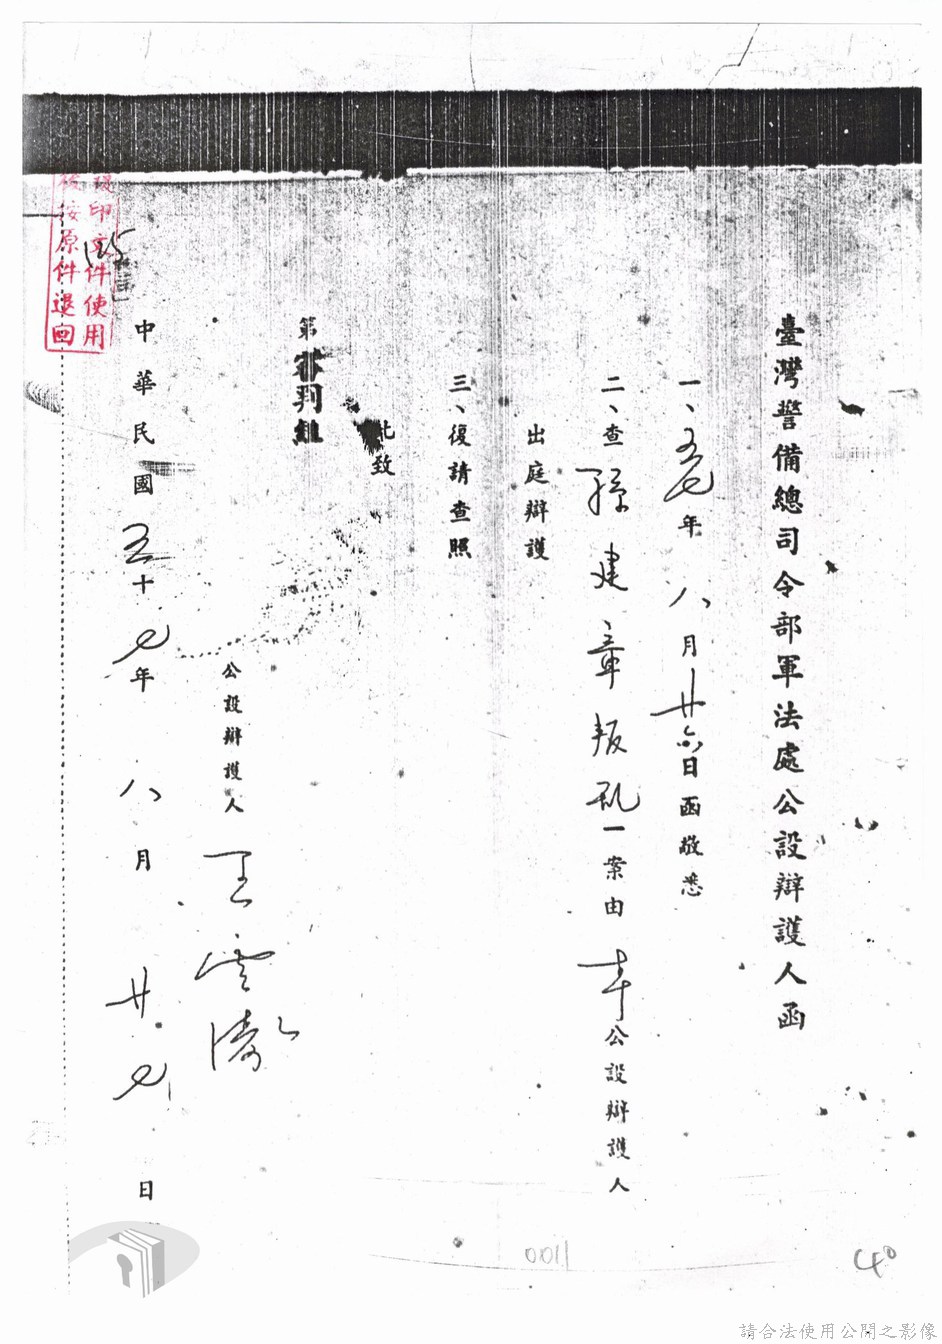 臺灣警備總司令部軍法處公設辯護人函
一、五七年八月廿六日函敬悉
二、查孫建章叛乱一案由本公設辯護人
出庭辯護
三、復請查照
此致
第審判組
公設辯護人王雲濤
中華民國五十七年八月廿七日
複印文件使用
後按原件退回
0011
40
請合法使用公開之影像